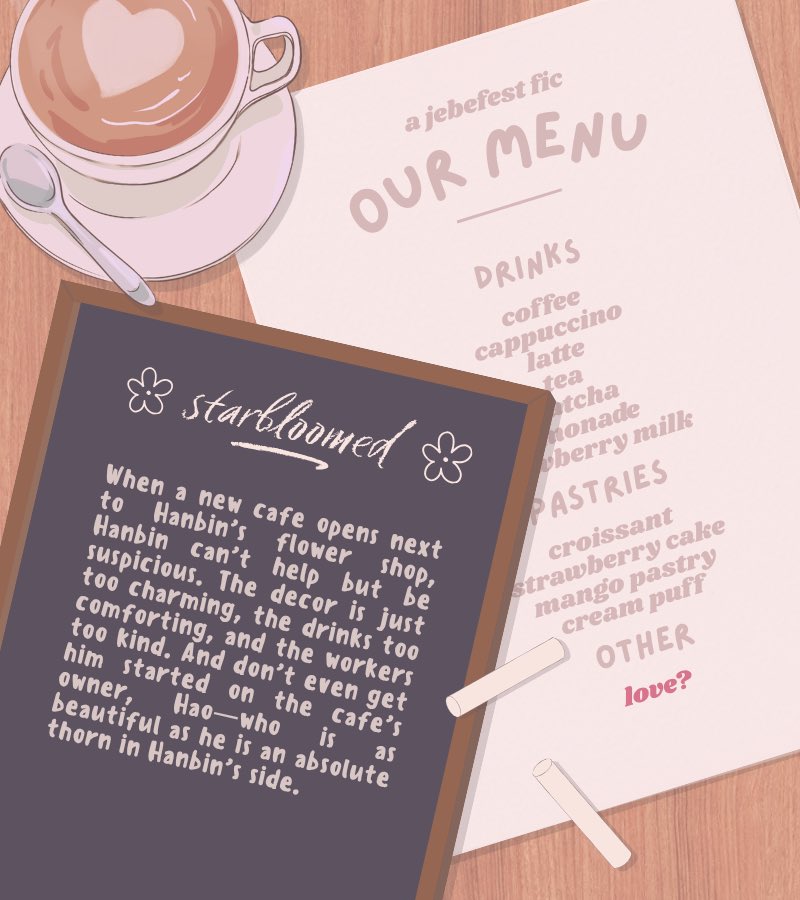 a jebefest fic
OUR MENU
DRINKS
coffee
cappuccino
latte
tea
PASTRIES
croissant
strawberry cake
mango pastry
cream puff
OTHER
love?
starbloomed
When a new cafe opens next
to Hanbin's flower shop,
Hanbin can't help but be
suspicious. The decor is just
too charming, the drinks too
comforting, and the workers
too kind. And don't even get
him started on the cafe's
owner, Hao—who is as
beautiful as he is an absolute
thorn in Hanbin's side.